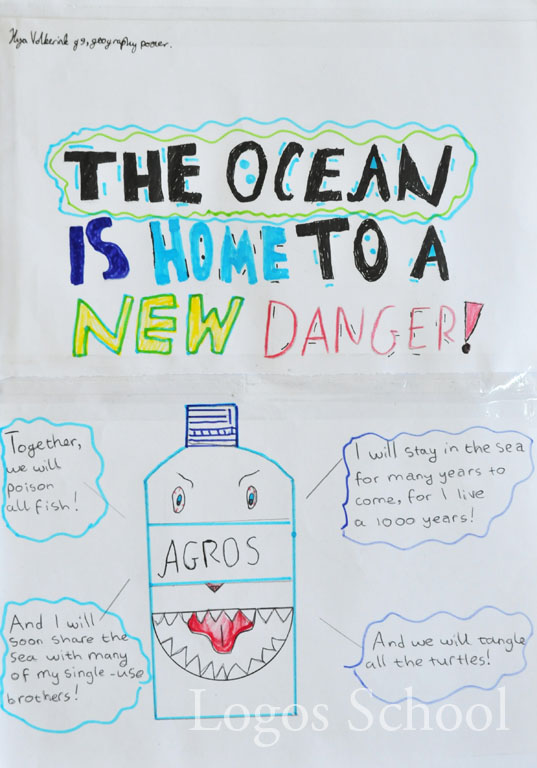 Ilya Volkerink g9, geography poster.
THE OCEAN
IS HOME TO A
NEW DANGER!
Together,
we will
poison
all fish!
I will stay in the sea
for many years to
come, for I live
a 1000 years!
AGROS
And I will
soon share the
sea with many
of my single-use
brothers!
And we will tangle
all the turtles!
Logos School